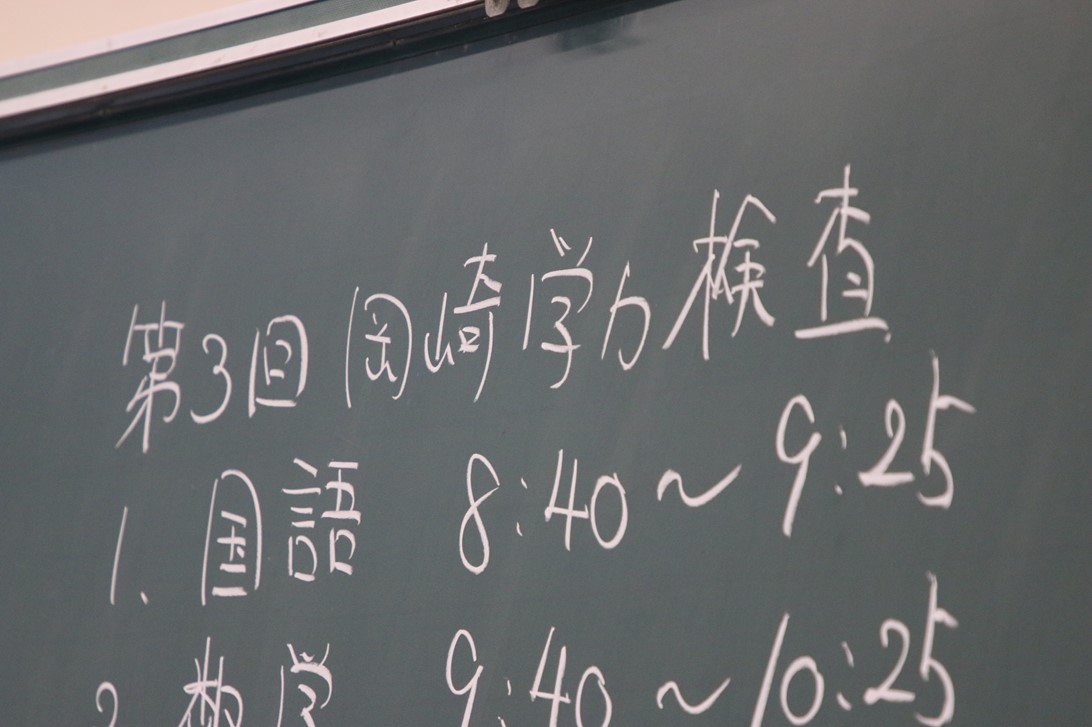 第3回岡崎学力検査
1.国語 8:40～9:25
2.数学 9:40～10:25